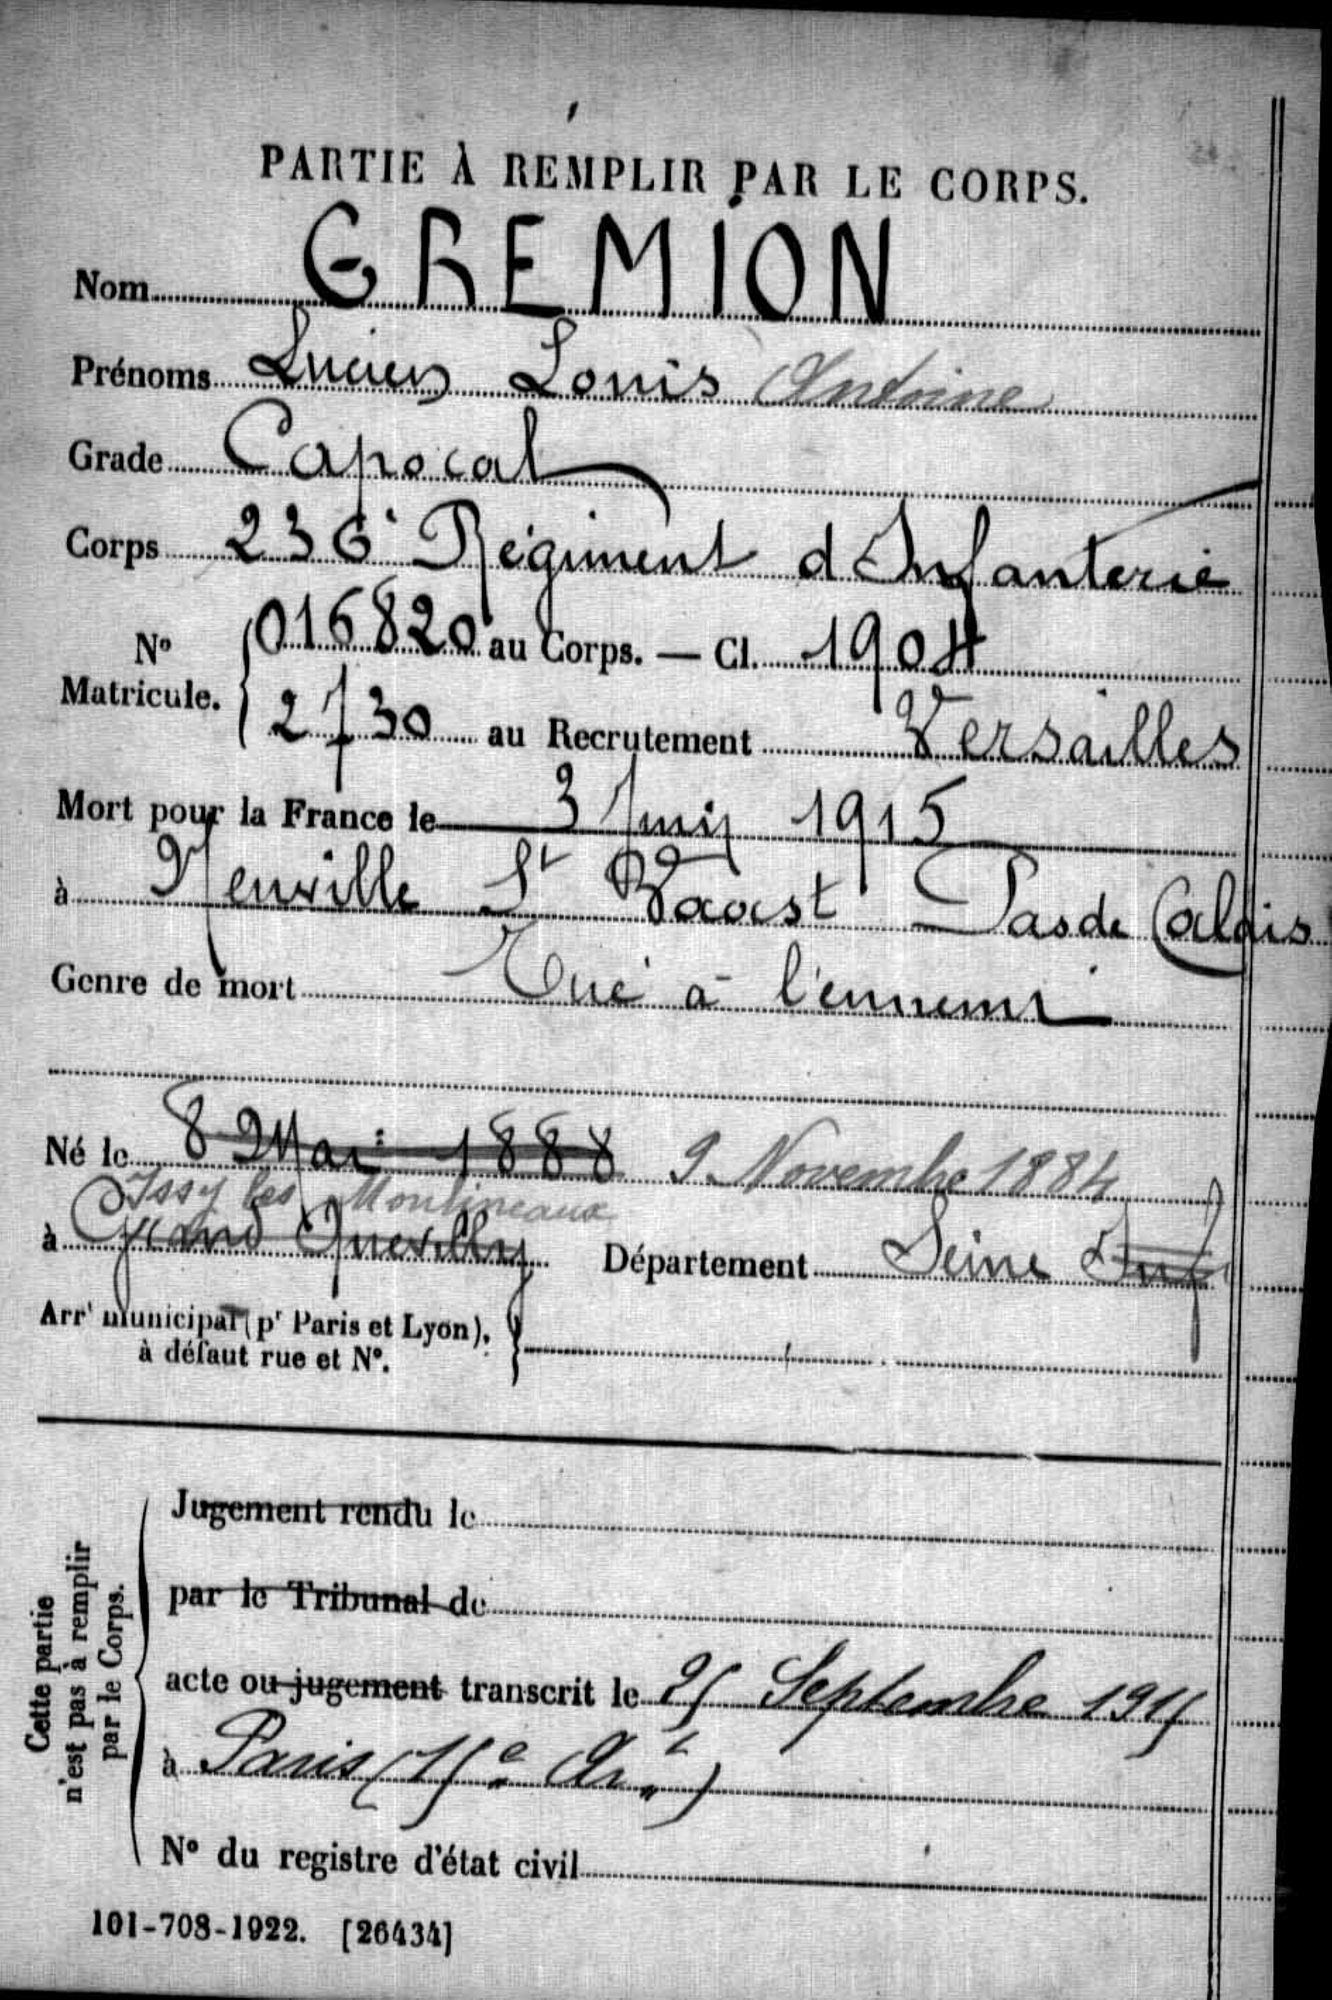 PARTIE À REMPLIR PAR LE CORPS.
Nom GREMION
Prénoms Lucien Louis Antoine
Grade Caporal
Corps 236e Régiment d'Infanterie
No Matricule. 016820 au Corps. — Cl. 1904
2730 au Recrutement Versailles
Mort pour la France le 3 Juin 1915
à Neuville St Vaast Pas de Calais
Genre de mort Tué à l'ennemi
Né le 8 Mai 1888 9 Novembre 1884
Issy les Moulineaux
à Grand Quevilly Département Seine Inf
Arrt municipal (pr Paris et Lyon),
à défaut rue et No.
Cette partie n'est pas à remplir par le Corps.
Jugement rendu le
par le Tribunal de
acte ou jugement transcrit le 25 Septembre 1915
à Paris (15e Art)
No du registre d'état civil
101-708-1922. [26434]